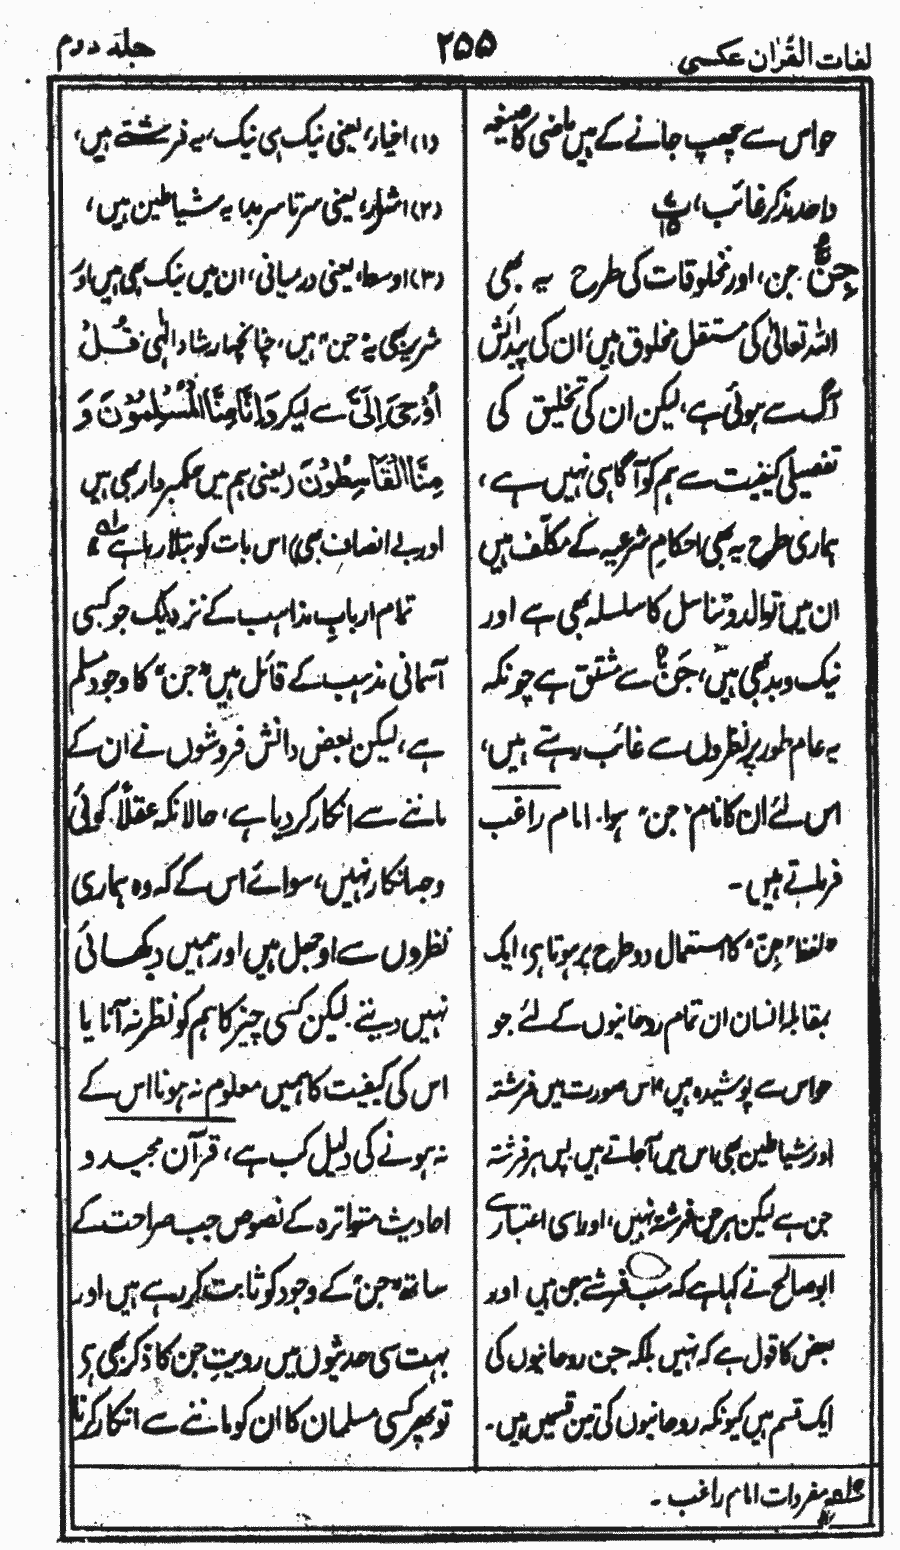 لغات القرآن عکسی
۲۵۵
جلد دوم
حواس سے چھپ جانے کے ہیں ماضی کا صیغہ
واحد مذکر غائب، پ ۱۵
جِنٌّ جن، اور مخلوقات کی طرح یہ بھی
اللہ تعالیٰ کی مستقل مخلوق ہیں، ان کی پیدائش
آگ سے ہوئی ہے، لیکن ان کی تخلیق کی
تفصیلی کیفیت سے ہم کو آگاہی نہیں ہے،
ہماری طرح یہ بھی احکامِ شرعیہ کے مکلّف ہیں
ان میں توالد و تناسل کا سلسلہ بھی ہے اور
نیک و بد بھی ہیں، جَنَّ سے مشتق ہے چونکہ
یہ عام طور پر نظروں سے غائب رہتے ہیں،
اس لئے ان کا نام "جن" ہوا۔ امام راغب
فرماتے ہیں۔
"لفظ "جِنّ" کا استعمال دو طرح پر ہوتا ہی، ایک
بمقابلہ انسان ان تمام روحانیوں کے لئے جو
حواس سے پوشیدہ ہیں" اس صورت میں فرشتہ
اور شیاطین بھی اس میں آ جاتے ہیں پس ہر فرشتہ
جن ہے لیکن ہر جن فرشتہ نہیں، اور اسی اعتبار سے
ابو صالح نے کہا ہے کہ سب فرشتے جن ہیں اور
بعض کا قول ہے کہ نہیں بلکہ جن روحانیوں کی
ایک قسم ہیں کیونکہ روحانیوں کی تین قسمیں ہیں۔
(۱) اخیار، یعنی نیک ہی نیک، یہ فرشتے ہیں،
(۲) اشرار، یعنی سر تا سر بد، یہ شیاطین ہیں،
(۳) اوسط، یعنی درمیانی، ان میں نیک بھی ہیں اور
شریر بھی یہ "جن" ہیں، چنانچہ ارشاد الٰہی قُلْ
اُوْحِیَ اِلَیَّ سے لیکر وَاِنَّا مِنَّا الْمُسْلِمُوْنَ وَ
مِنَّا الْقَاسِطُوْنَ (یعنی ہم میں حکمبردار بھی ہیں
اور بے انصاف بھی) اس بات کو بتلا رہا ہے
تمام اربابِ مذاہب کے نزدیک جو کسی
آسمانی مذہب کے قائل ہیں "جن" کا وجود مسلم
ہے، لیکن بعض دانش فروشوں نے ان کے
ماننے سے انکار کر دیا ہے، حالانکہ عقلاً کوئی
وجہ انکار نہیں، سوائے اس کے کہ وہ ہماری
نظروں سے اوجھل ہیں اور ہمیں دکھائی
نہیں دیتے۔ لیکن کسی چیز کا ہم کو نظر نہ آنا یا
اس کی کیفیت کا ہمیں معلوم نہ ہونا اس کے
نہ ہونے کی دلیل کب ہے، قرآن مجید و
احادیث متواترہ کے نصوص جب صراحت کے
ساتھ "جن" کے وجود کو ثابت کر رہے ہیں اور
بہت سی حدیثوں میں رویتِ جن کا ذکر بھی ہی
تو پھر کسی مسلمان کا ان کو ماننے سے انکار کرنا
مفردات امام راغب۔